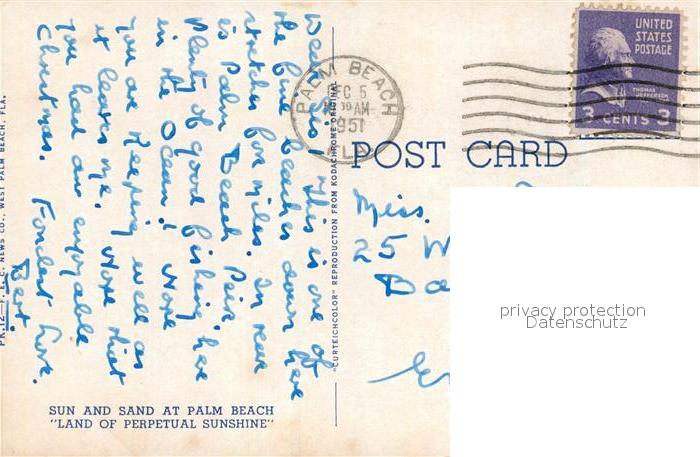 Well Sis! This is one of
the fine beaches down here
stretches for miles. In rear
is Palm Beach Peir.
Plenty of good fishing here
in the Ocean! Hope
you are keeping well as
it leaves me. Hope that
you had an enjoyable
Christmas. Fondest Love.
Bert.
SUN AND SAND AT PALM BEACH
"LAND OF PERPETUAL SUNSHINE"
PK.12—F. E. C. NEWS CO., WEST PALM BEACH, FLA.
"CURTEICHCOLOR" REPRODUCTION FROM KODACHROME ORIGINAL
PALM BEACH
DEC 5
AM
1951
FLA
UNITED
STATES
POSTAGE
THOMAS
JEFFERSON
3 CENTS 3
POST CARD
Miss.
25 W
privacy protection
Datenschutz